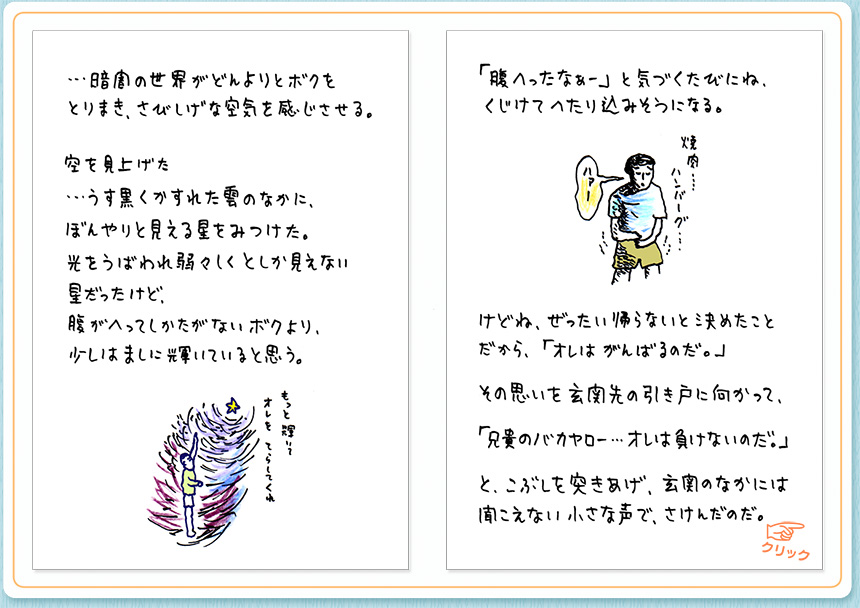 …暗闇の世界がどんよりとボクを
とりまき、さびしげな空気を感じさせる。
空を見上げた
…うす黒くかすれた雲のなかに、
ぼんやりと見える星をみつけた。
光をうばわれ弱々しくとしか見えない
星だったけど、
腹がへってしかたがないボクより、
少しはましに輝いていると思う。
もっと輝いて
オレを てらしてくれ
「腹へったなぁー」と気づくたびにね、
くじけてへたり込みそうになる。
焼肉…
ハンバーグ…
ハァー
けどね、ぜったい帰らないと決めたこと
だから、「オレは がんばるのだ。」
その思いを玄関先の引き戸に向かって、
「兄貴のバカヤロー…オレは負けないのだ。」
と、こぶしを突きあげ、玄関のなかには
聞こえない小さな声で、さけんだのだ。
クリック